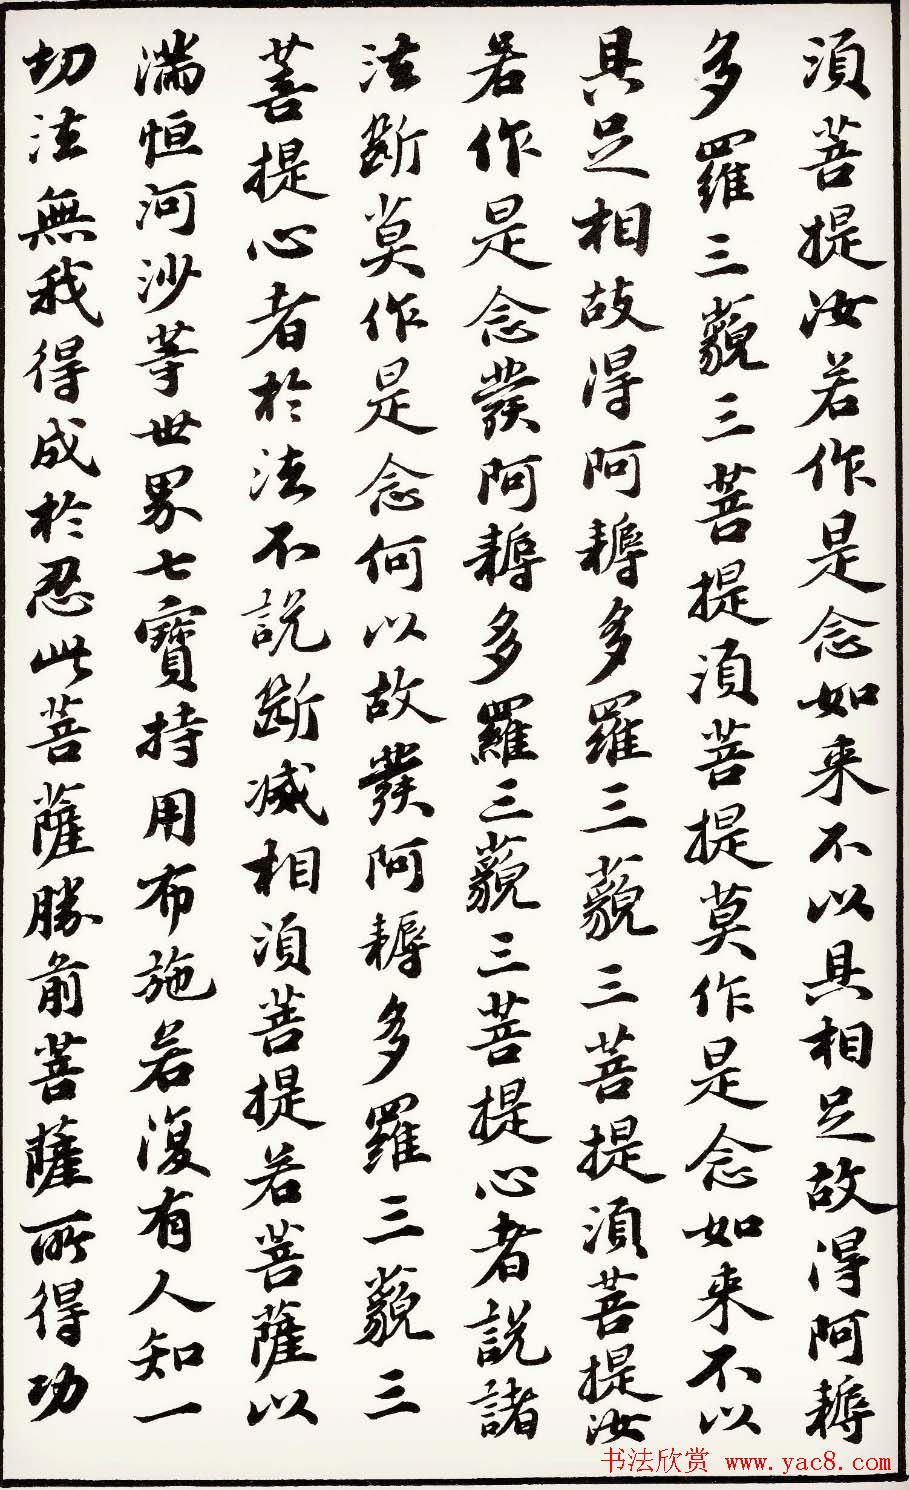 須菩提汝若作是念如来不以具相足故得阿耨
多羅三藐三菩提須菩提莫作是念如来不以
具足相故得阿耨多羅三藐三菩提須菩提汝
若作是念發阿耨多羅三藐三菩提心者説諸
法断莫作是念何以故發阿耨多羅三藐三
菩提心者於法不説断滅相須菩提若菩薩以
満恒河沙等世界七寶持用布施若復有人知一
切法無我得成於忍此菩薩勝前菩薩所得功
书法欣赏 www.yac8.com